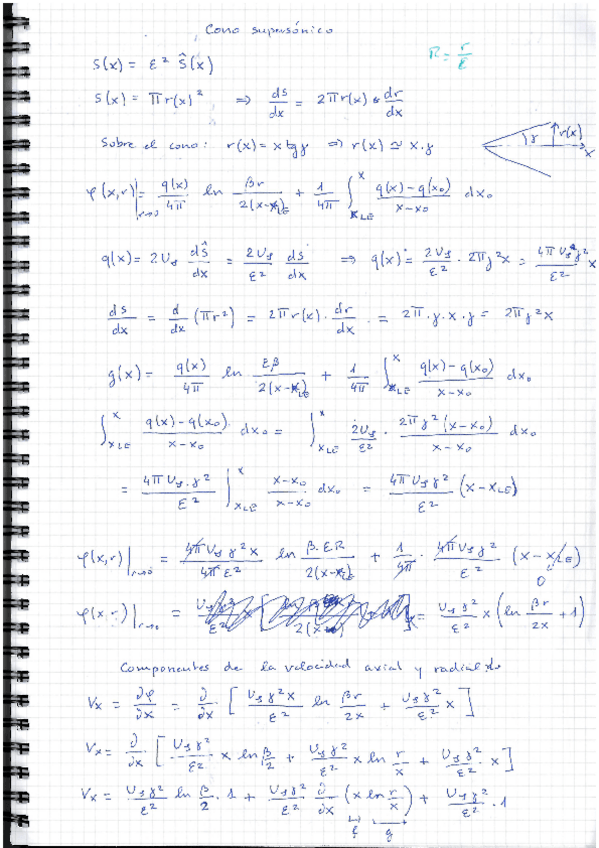 Cono supersónico
R = r/ε
S(x) = ε² Ŝ(x)
S(x) = π r(x)² ⇒ ds/dx = 2π r(x) · dr/dx
Sobre el cono: r(x) = x tgγ ⇒ r(x) ≃ x·γ
γ r(x) x
φ(x,r)|r→0 = q(x)/4π ln βr/2(x-xLE) + 1/4π ∫xLE^x q(x)-q(x₀)/x-x₀ dx₀
q(x) = 2U∞ dŝ/dx = 2U∞/ε² ds/dx ⇒ q(x) = 2U∞/ε² · 2πγ²x = 4πU∞γ²/ε² x
ds/dx = d/dx (πr²) = 2π r(x) · dr/dx = 2π·γ·x·γ = 2πγ²x
g(x) = q(x)/4π ln εβ/2(x-xLE) + 1/4π ∫xLE^x q(x)-q(x₀)/x-x₀ dx₀
∫xLE^x q(x)-q(x₀)/x-x₀ dx₀ = ∫xLE^x 2U∞/ε² · 2πγ²(x-x₀)/x-x₀ dx₀
= 4πU∞·γ²/ε² ∫xLE^x x-x₀/x-x₀ dx₀ = 4πU∞γ²/ε² (x-xLE)
φ(x,r)|r→0 = 4πU∞γ²x/4πε² ln β·εR/2(x-xLE) + 1/4π · 4πU∞γ²/ε² (x-xLE)
0
φ(x,r)|r→0 = U∞γ²/ε² x [ ] = U∞γ²/ε² x (ln βr/2x + 1)
Componentes de la velocidad axial y radial
Vx = ∂φ/∂x = ∂/∂x [U∞γ²x/ε² ln βr/2x + U∞γ²/ε² x]
Vx = ∂/∂x [U∞γ²/ε² x ln β/2 + U∞γ²/ε² x ln r/x + U∞γ²/ε² · x]
Vx = U∞γ²/ε² ln β/2 · 1 + U∞γ²/ε² ∂/∂x (x ln r/x) + U∞γ²/ε² · 1
f g